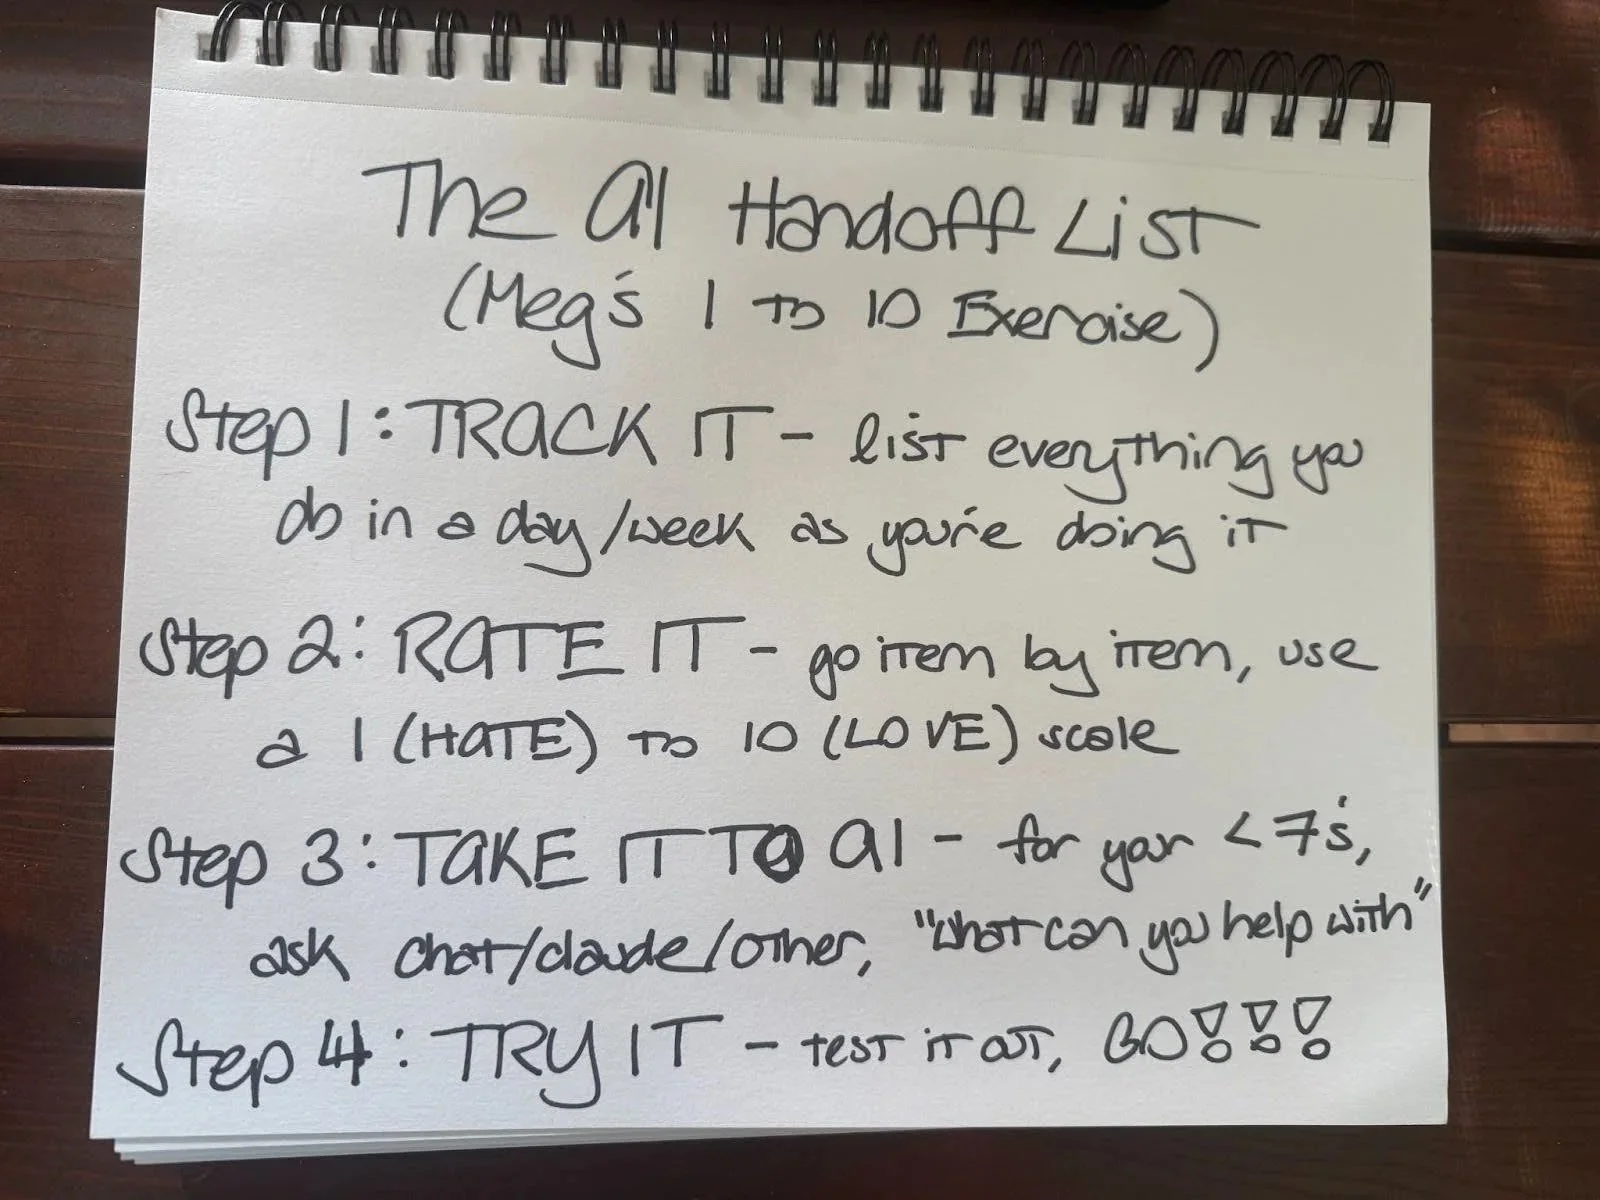 The AI Handoff List
(Meg's 1 to 10 Exercise)
Step 1: TRACK IT - list everything you
do in a day/week as you're doing it
Step 2: RATE IT - go item by item, use
a 1 (HATE) to 10 (LOVE) scale
Step 3: TAKE IT TO AI - for your <7's,
ask chat/claude/other, "what can you help with"
Step 4: TRY IT - test it out, GO!!!